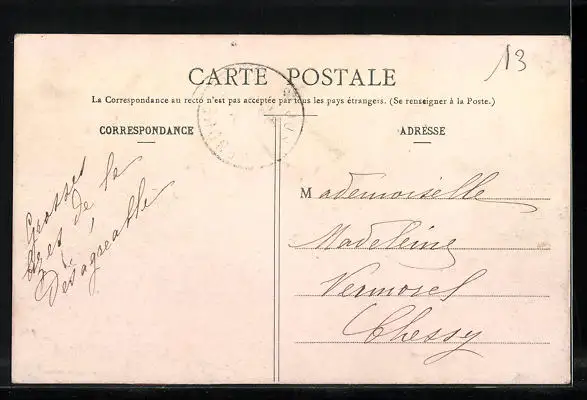 13
CARTE POSTALE
La Correspondance au recto n'est pas acceptée par tous les pays étrangers. (Se renseigner à la Poste.)
CORRESPONDANCE
ADRESSE
Grosses
de la
Désagreable
Mademoiselle
Madeleine
Vermorel
Chessy